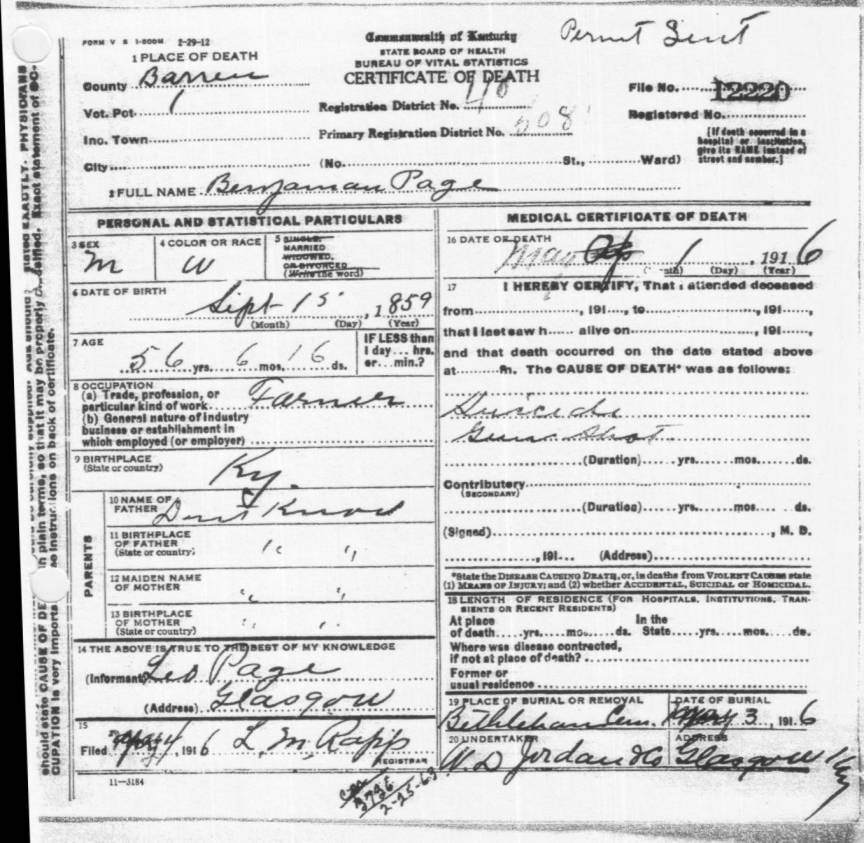 FORM V S 1-500M 2-29-12
Commonwealth of Kentucky
Permit Sent
STATE BOARD OF HEALTH
BUREAU OF VITAL STATISTICS
CERTIFICATE OF DEATH
1 PLACE OF DEATH
County Barren
Vot. Pct. 1
Inc. Town
City (No. St., Ward)
Registration District No. 40
Primary Registration District No. 508
File No. 12220
Registered No.
[If death occurred in a
hospital or institution,
give its NAME instead of
street and number.]
2 FULL NAME Benjaman Page
PERSONAL AND STATISTICAL PARTICULARS
3 SEX M
4 COLOR OR RACE W
5 SINGLE,
MARRIED
WIDOWED,
OR DIVORCED
(Write the word)
6 DATE OF BIRTH Sept 15, 1859
(Month) (Day) (Year)
7 AGE 56 yrs. 6 mos. 16 ds.
IF LESS than
1 day... hrs.
or... min.?
8 OCCUPATION
(a) Trade, profession, or
particular kind of work Farmer
(b) General nature of industry
business or establishment in
which employed (or employer)
9 BIRTHPLACE
(State or country) Ky.
PARENTS
10 NAME OF
FATHER Dont Know
11 BIRTHPLACE
OF FATHER
(State or country) " "
12 MAIDEN NAME
OF MOTHER " "
13 BIRTHPLACE
OF MOTHER
(State or country) " "
14 THE ABOVE IS TRUE TO THE BEST OF MY KNOWLEDGE
(Informant) Leo Page
(Address) Glasgow
15
Filed May 4, 1916 L. M. Rapp
REGISTRAR
11-3184
MEDICAL CERTIFICATE OF DEATH
16 DATE OF DEATH
May 1, 1916
(Month) (Day) (Year)
17 I HEREBY CERTIFY, That I attended deceased
from, 191, to, 191,
that I last saw h alive on, 191,
and that death occurred on the date stated above
at m. The CAUSE OF DEATH* was as follows:
Suicide
Gun Shot
(Duration) yrs. mos. ds.
Contributory
(SECONDARY)
(Duration) yrs. mos. ds.
(Signed), M. D.
, 191 (Address)
*State the DISEASE CAUSING DEATH, or, in deaths from VIOLENT CAUSES state
(1) MEANS OF INJURY; and (2) whether ACCIDENTAL, SUICIDAL or HOMICIDAL.
18 LENGTH OF RESIDENCE (FOR HOSPITALS, INSTITUTIONS, TRAN-
SIENTS OR RECENT RESIDENTS)
At place In the
of death yrs. mos. ds. State yrs. mos. ds.
Where was disease contracted,
if not at place of death?
Former or
usual residence
19 PLACE OF BURIAL OR REMOVAL DATE OF BURIAL
Bethlehem Cem. May 3, 1916
20 UNDERTAKER ADDRESS
W. D Jordan & Co Glasgow Ky
3736
2-23-68
should state CAUSE OF DE in plain terms, so that it may be properly classified. Exact statement of OC-
CUPATION is very importa instructions on back of certificate.